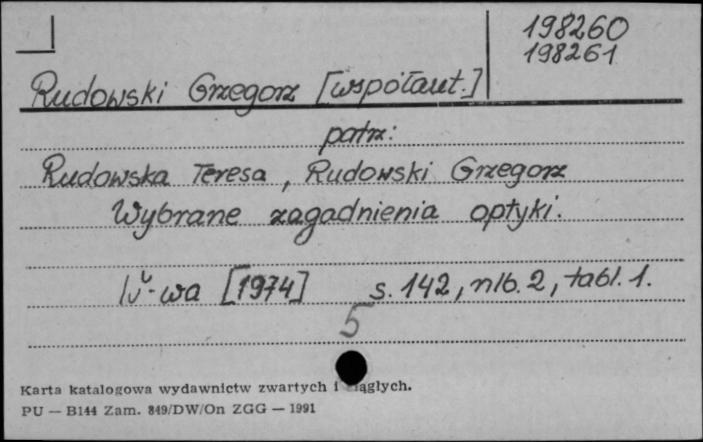 198260
198261
Rudowski Grzegorz [współaut.]
patrz:
Rudowska Teresa, Rudowski Grzegorz
Wybrane zagadnienia optyki.
W-wa [1974] s. 142, nlb. 2, tabl. 1.
5
Karta katalogowa wydawnictw zwartych i ciągłych.
PU — B144 Zam. 849/DW/On ZGG — 1991